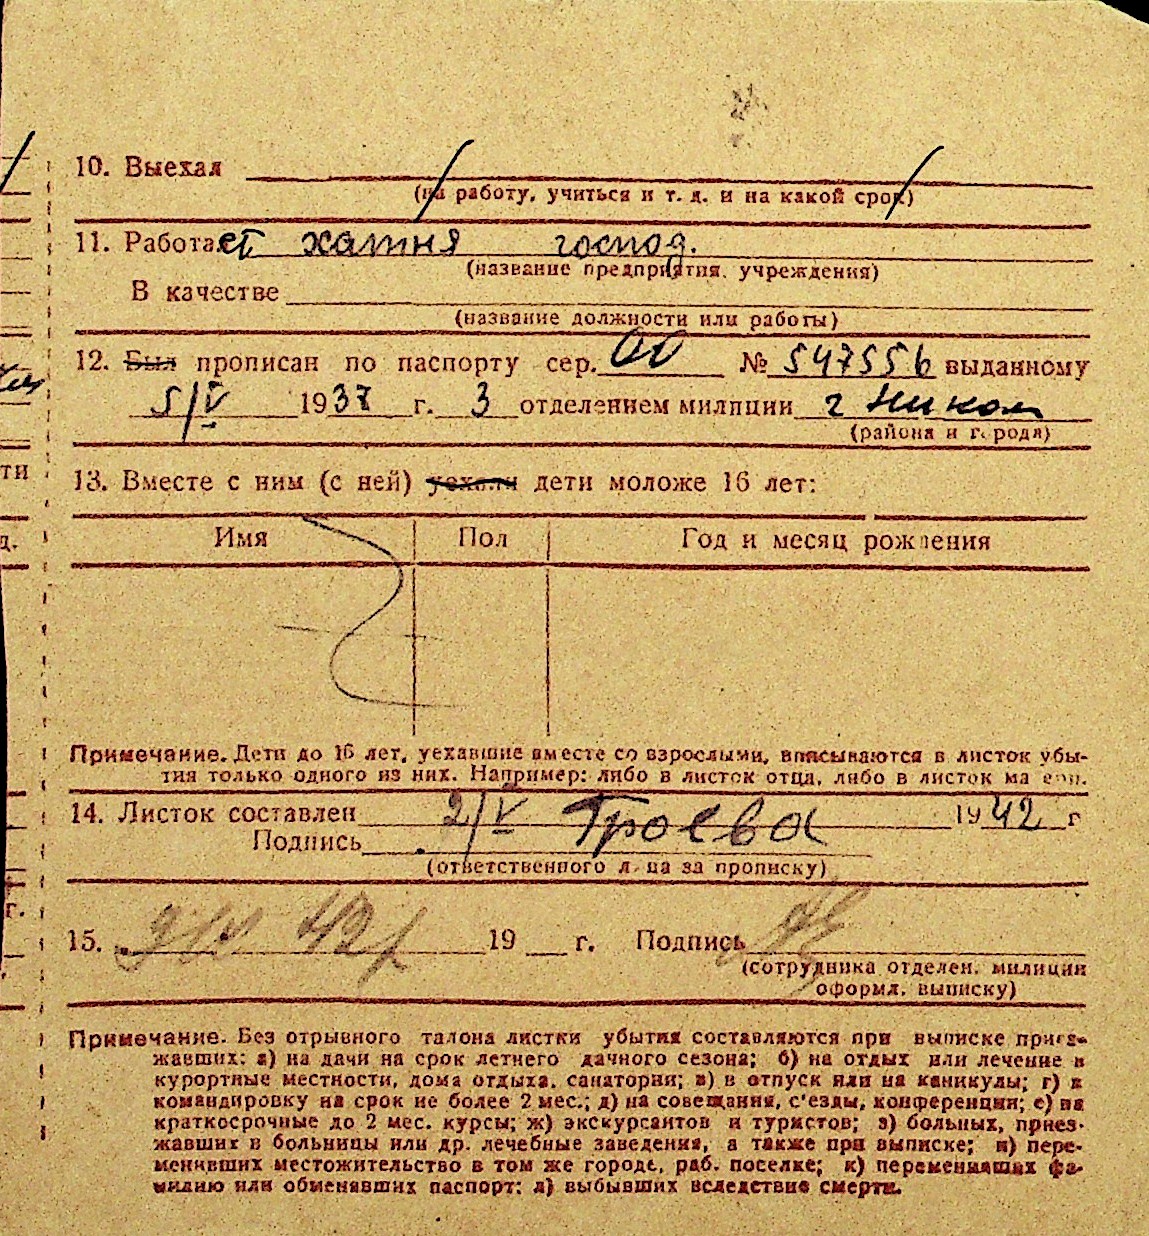 10. Выехал
(на работу, учиться и т. д. и на какой срок)
11. Работает хатня господ.
(название предприятия, учреждения)
В качестве
(название должности или работы)
12. Был прописан по паспорту сер. № 547556 выданному
5/V 1937 г. 3 отделением милиции г Никол
(района и города)
13. Вместе с ним (с ней) уехали дети моложе 16 лет:
Имя Пол Год и месяц рождения
Примечание. Дети до 16 лет, уехавшие вместе со взрослыми, вписываются в листок убы-
тия только одного из них. Например: либо в листок отца, либо в листок матери.
14. Листок составлен 2/V Троева 1942 г
Подпись
(ответственного лица за прописку)
15. 42 19 г. Подпись
(сотрудника отделен. милиции
оформл. выписку)
Примечание. Без отрывного талона листки убытия составляются при выписке приез-
жавших: а) на дачи на срок летнего дачного сезона; б) на отдых или лечение в
курортные местности, дома отдыха, санатории; в) в отпуск или на каникулы; г) в
командировку на срок не более 2 мес.; д) на совещания, с'езды, конференции; е) на
краткосрочные до 2 мес. курсы; ж) экскурсантов и туристов; з) больных, приез-
жавших в больницы или др. лечебные заведения, а также при выписке; и) пере-
менивших местожительство в том же городе, раб. поселке; к) переменивших фа-
милию или обменявших паспорт; л) выбывших вследствие смерти.